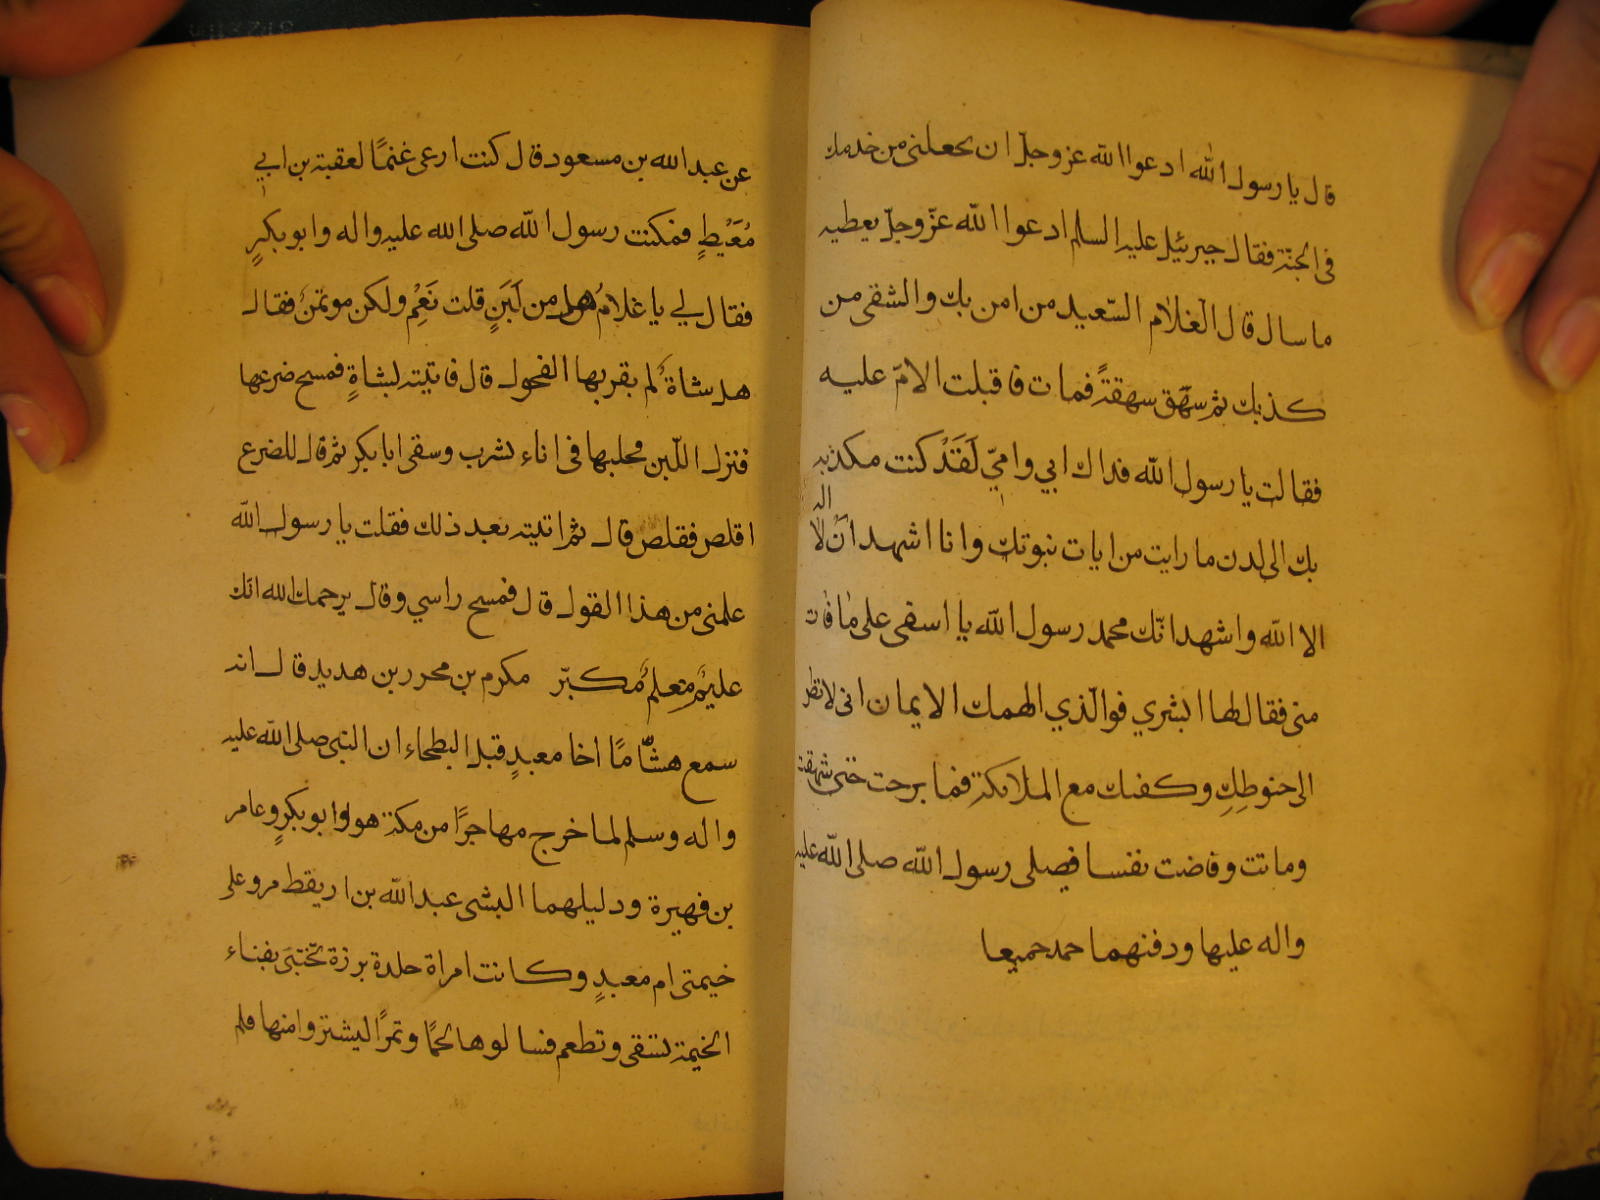 قال يا رسول الله ادعوا الله عز وجل ان يجعلني من خدمك
في الجنة فقال جبرئيل عليه السلم ادعوا الله عز وجل يعطيه
ما سال قال الغلام السعيد من امن بك والشقي من
كذبك ثم سهق سهقة فمات فاقبلت الام عليه
فقالت يا رسول الله فداك ابي وامي لَقَدْ كنت مكذبه
بك الى لدن ما رايت من ايات نبوتك وانا اشهد ان لا اله
الا الله واشهد انك محمد رسول الله يا اسفى على ما فات
مني فقال لها ابشري فوالذي الهمك الايمان اني لانظر
الى حنوطكِ وكفنك مع الملائكة فما برحت حتى شهقت
وماتت وفاضت نفسها فصلى رسول الله صلى الله عليه
واله عليها ودفنهما جميعا
عن عبد الله بن مسعود قال كنت ارعى غنمًا لعقبة بن ابي
مُعَيْطٍ فمكنت رسول الله صلى الله عليه واله وابو بكرٍ
فقال لي يا غلامُ هل من لَبَنٍ قلت نَعَم ولكن موتمن فقال
هل شاةٌ لم يقربها الفحول قال فاتيته بشاةٍ فمسح ضرعها
فنزل اللبن فحلبها في اناء بشرب وسقى ابا بكر ثم قال للضرع
اقلص فقلص قال ثم اتيته بعد ذلك فقلت يا رسول الله
علمني من هذا القول قال فمسح راسي وقال يرحمك الله انك
عليمٌ معلمٌ مكبّر مكرم بن محرر بن هديد قال انه
سمع هشّامًا اخا معبدٍ قبل البطحاء ان النبي صلى الله عليه
واله وسلم لما خرج مهاجرًا من مكة هو وابو بكرٍ وعامر
بن فهيرة ودليلهما البشى عبد الله بن اريقط مرو على
خيمتي ام معبدٍ وكانت امراة جلدة برزة تختبى بفناء
الخيمة تسقى وتطعم فسالوها لحمًا وتمرًا ليشتروا منها فلم